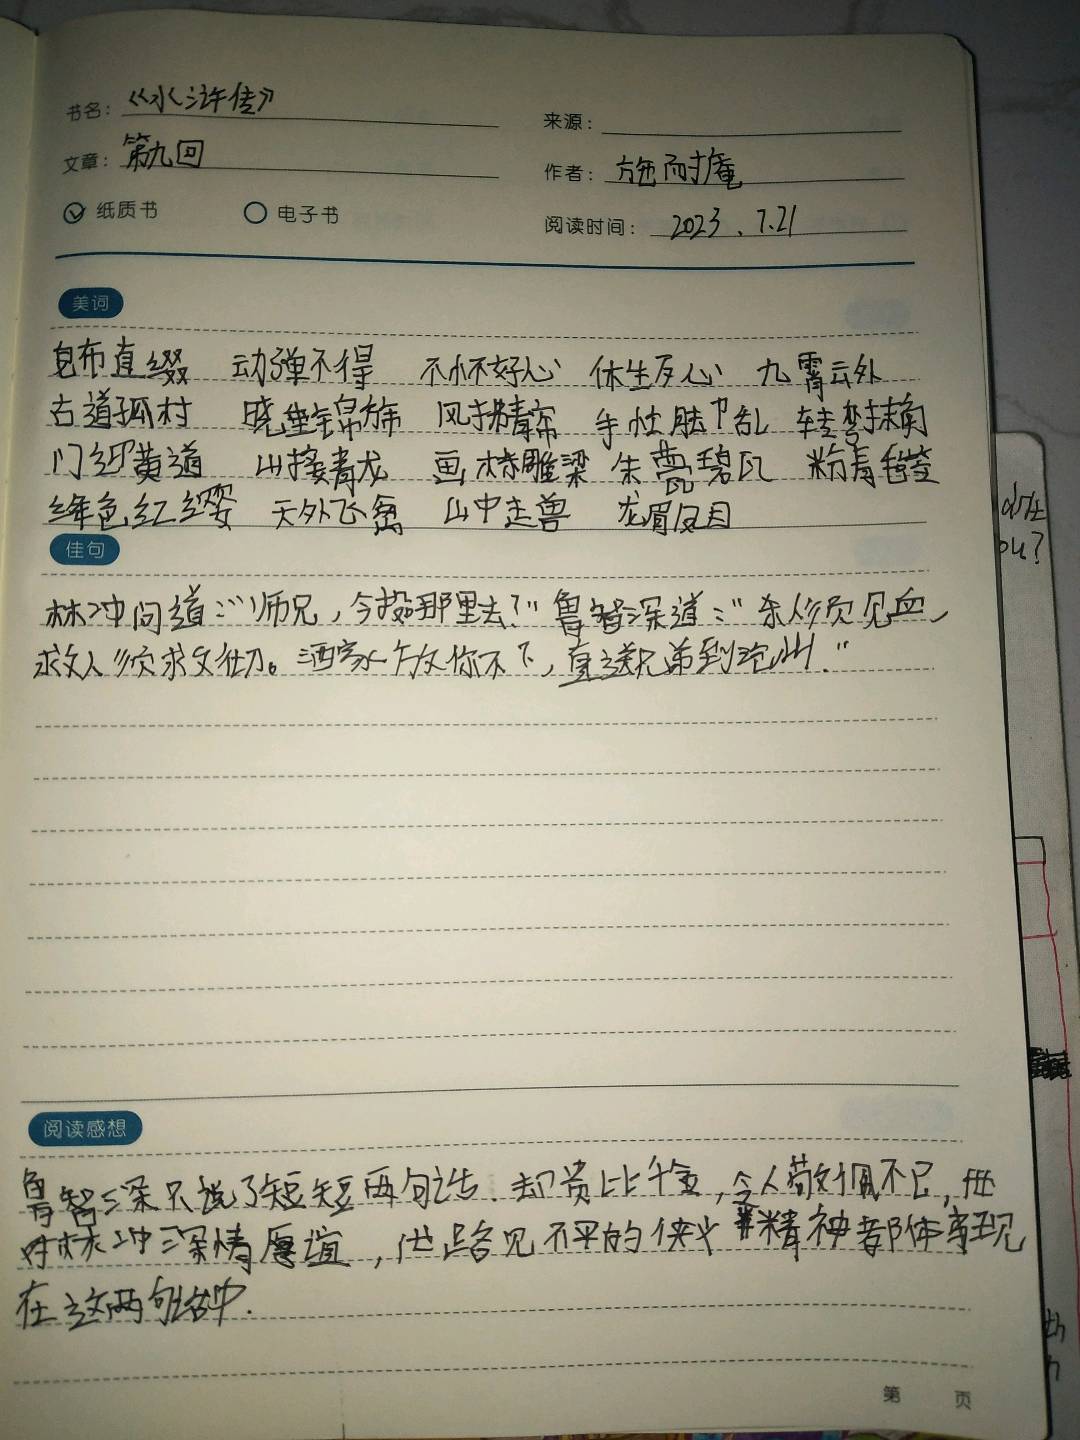 书名：《水浒传》
来源：
文章：第九回
作者：施耐庵
纸质书 电子书
阅读时间：2023.7.21
美词
皂布直缀 动弹不得 不怀好心 休生歹心 九霄云外
古道孤村 晓垂锦旆 风拂青帘 手忙脚乱 转弯抹角
门迎黄道 山接青龙 画栋雕梁 朱甍碧瓦 粉青毡笠
绛色红缨 天外飞禽 山中走兽 龙眉凤目
佳句
林冲问道："师兄，今投那里去？"鲁智深道："杀人须见血，
求救人须救彻。洒家放你不下，直送兄弟到沧州."
阅读感想
鲁智深只说了短短两句话.却贵比千金，令人敬佩不已，他
对林冲深情厚谊，他路见不平的侠义精神都体现
在这两句话中.
第 页